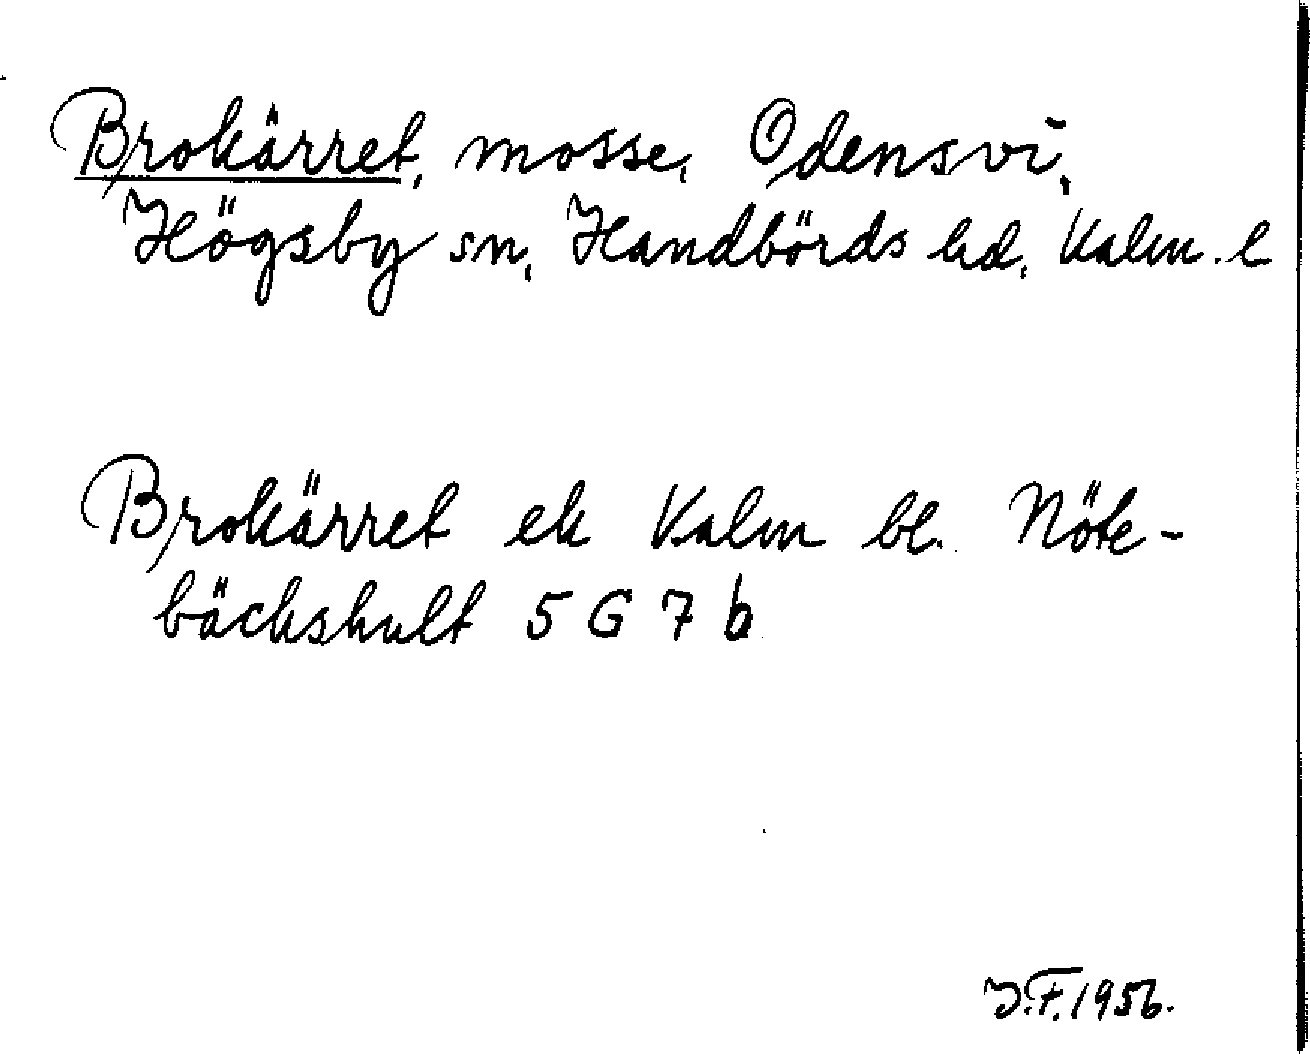 Brokärret, mosse, Odensvi,
Högsby sn, Handbörds hd, Kalm. l
Brokärret ek Kalm bl. Nöte-
bäckshult 5 G 7 b
J.F. 1956.